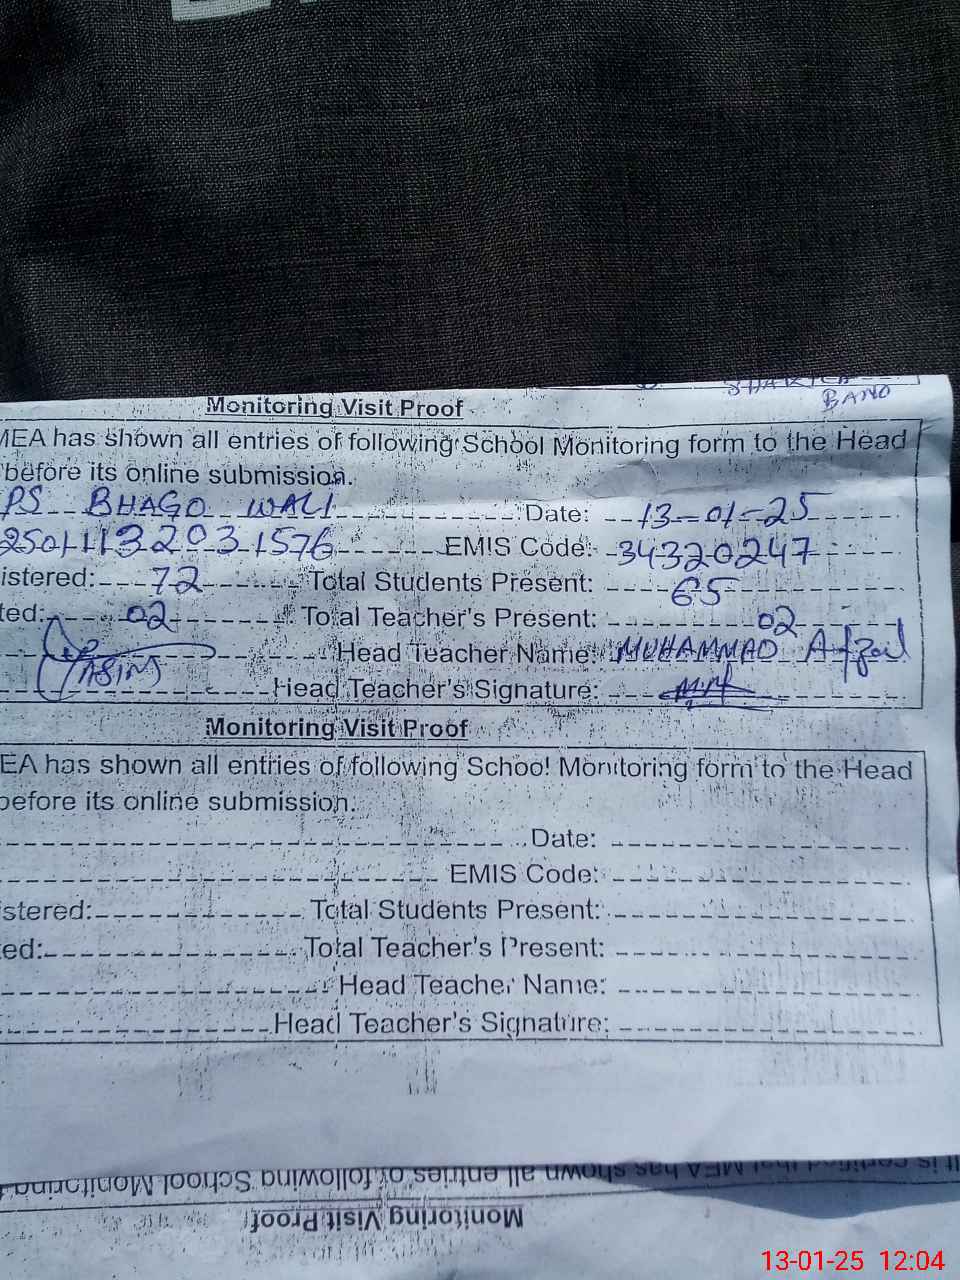 BANO
Monitoring Visit Proof
MEA has shown all entries of following School Monitoring form to the Head
before its online submission.
PS BHAGO WALI Date: 13-01-25
EMIS Code: 34320247
istered: 72 Total Students Present: 65
ted: 02 Total Teacher's Present: 02
Head Teacher Name: MUHAMMAD Afzal
(ASIM) Head Teacher's Signature:
Monitoring Visit Proof
EA has shown all entries of following School Monitoring form to the Head
before its online submission.
Date:
EMIS Code:
istered: Total Students Present:
ted: Total Teacher's Present:
Head Teacher Name:
Head Teacher's Signature:
It is certified that MEA has shown all entries of following School Monitoring
Monitoring Visit Proof
13-01-25 12:04